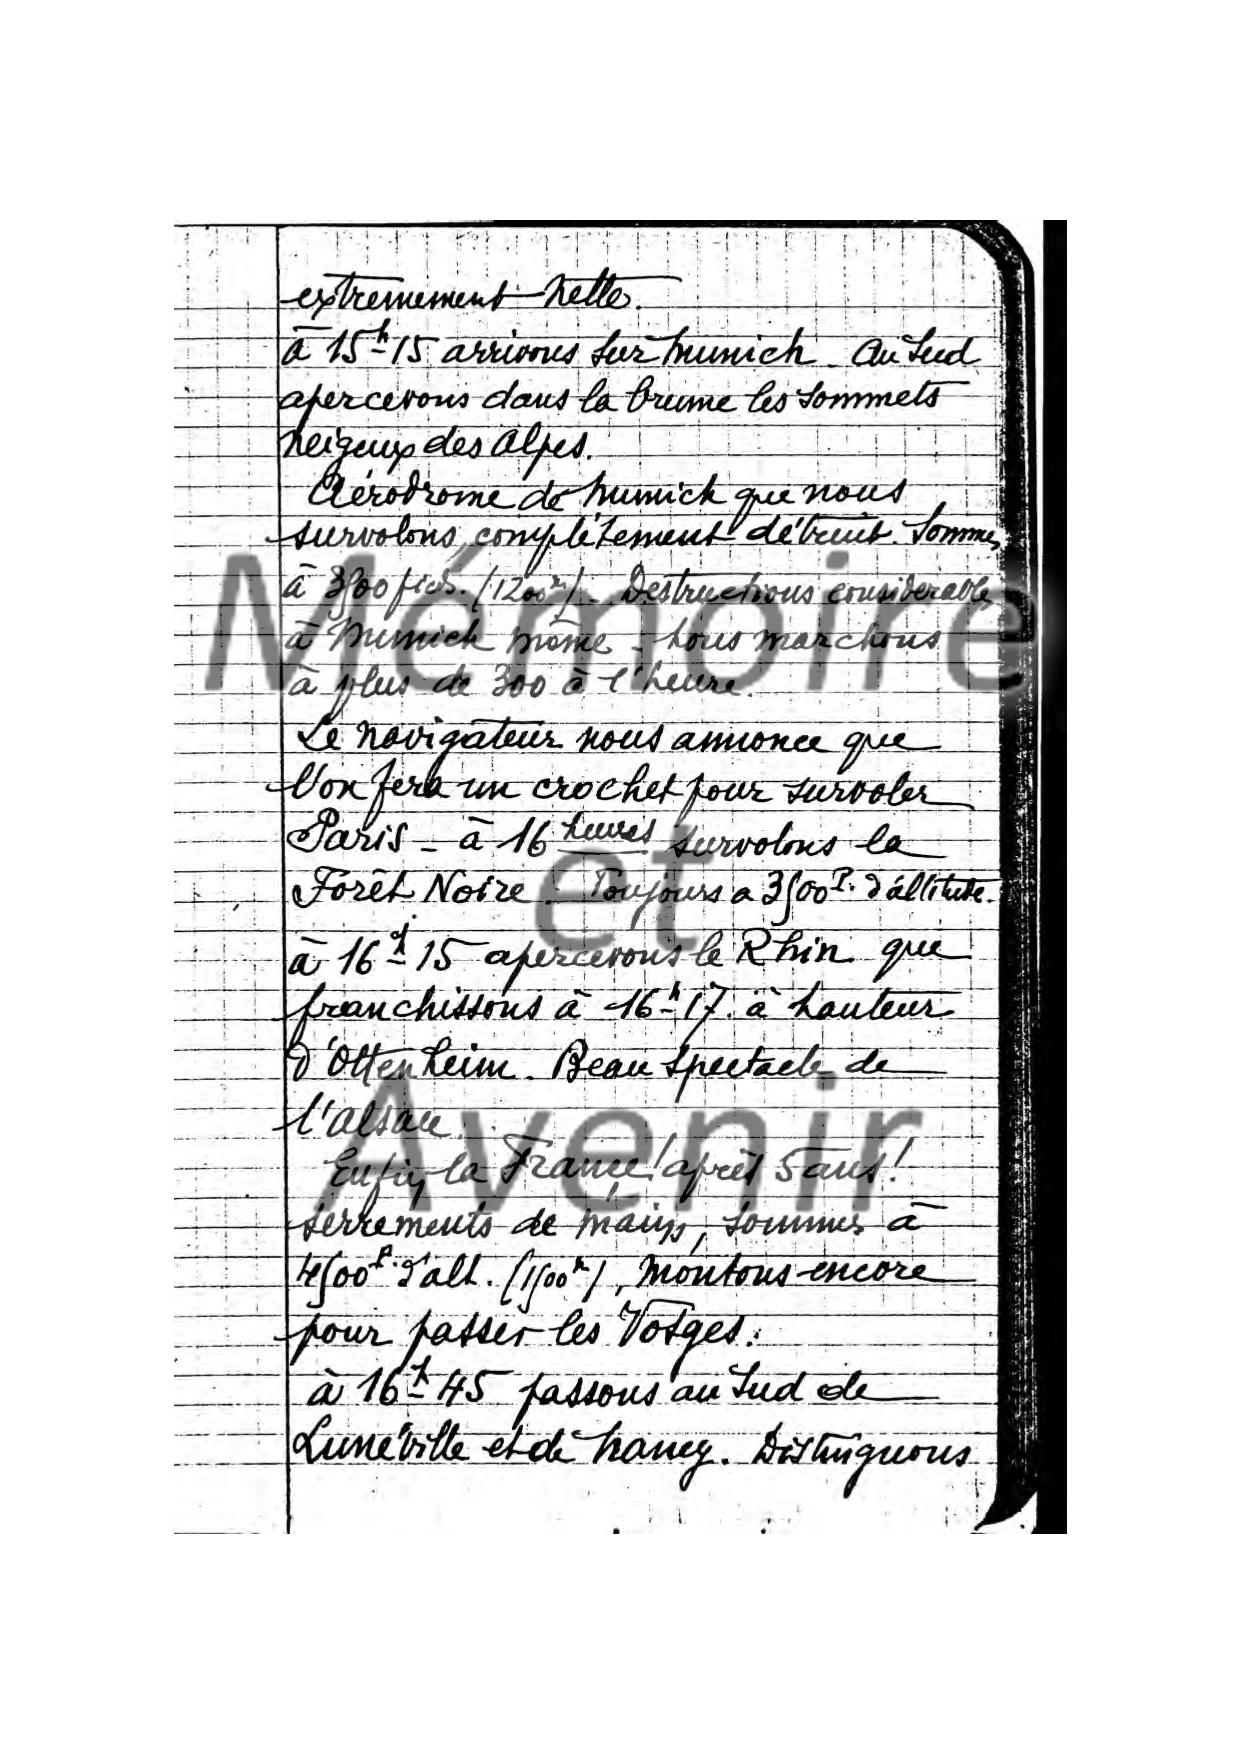 extrêmement nette.
à 15h-15 arrivons sur Munich. Au Sud
apercevons dans la brume les sommets
neigeux des Alpes.
Aérodrome de Munich que nous
survolons, complètement détruit. Sommes
à 3500 pieds. (1200m). Destructions considérables
à Munich même. Nous marchons
à plus de 300 à l'heure.
Le navigateur nous annonce que
l'on fera un crochet pour survoler
Paris - à 16 heures survolons la
Forêt Noire. Toujours a 3500P. d'altitude.
à 16h-15 apercevons le Rhin que
franchissons à 16h-17. à hauteur
d'Ottenheim. Beau spectacle de
l'Alsace.
Enfin, la France! après 5 ans!
serrements de mains, sommes à
4500P. d'alt. (1500m), montons encore
pour passer les Vosges.
à 16h-45 passons au Sud de
Lunéville et de Nancy. Distinguons
Mémoire
et
Avenir